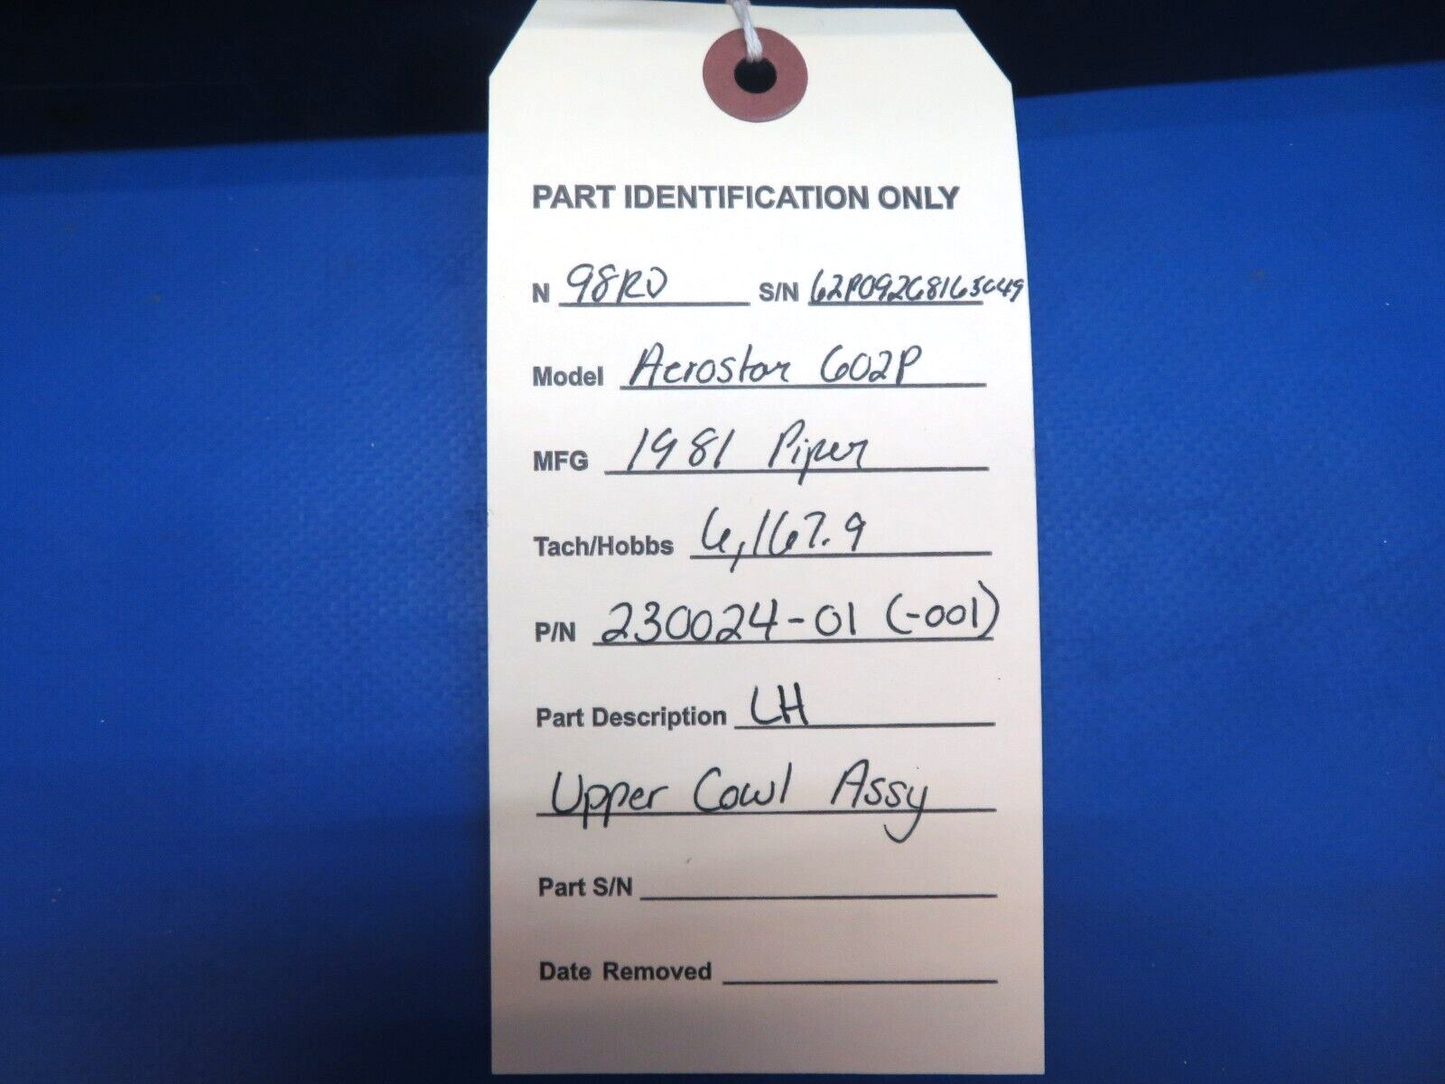 PART IDENTIFICATION ONLY
N 98RD S/N
Model Aerostar 602P
MFG 1981 Piper
Tach/Hobbs 6,167.9
P/N 230024-01 (-001)
Part Description LH
Upper Cowl Assy
Part S/N
Date Removed